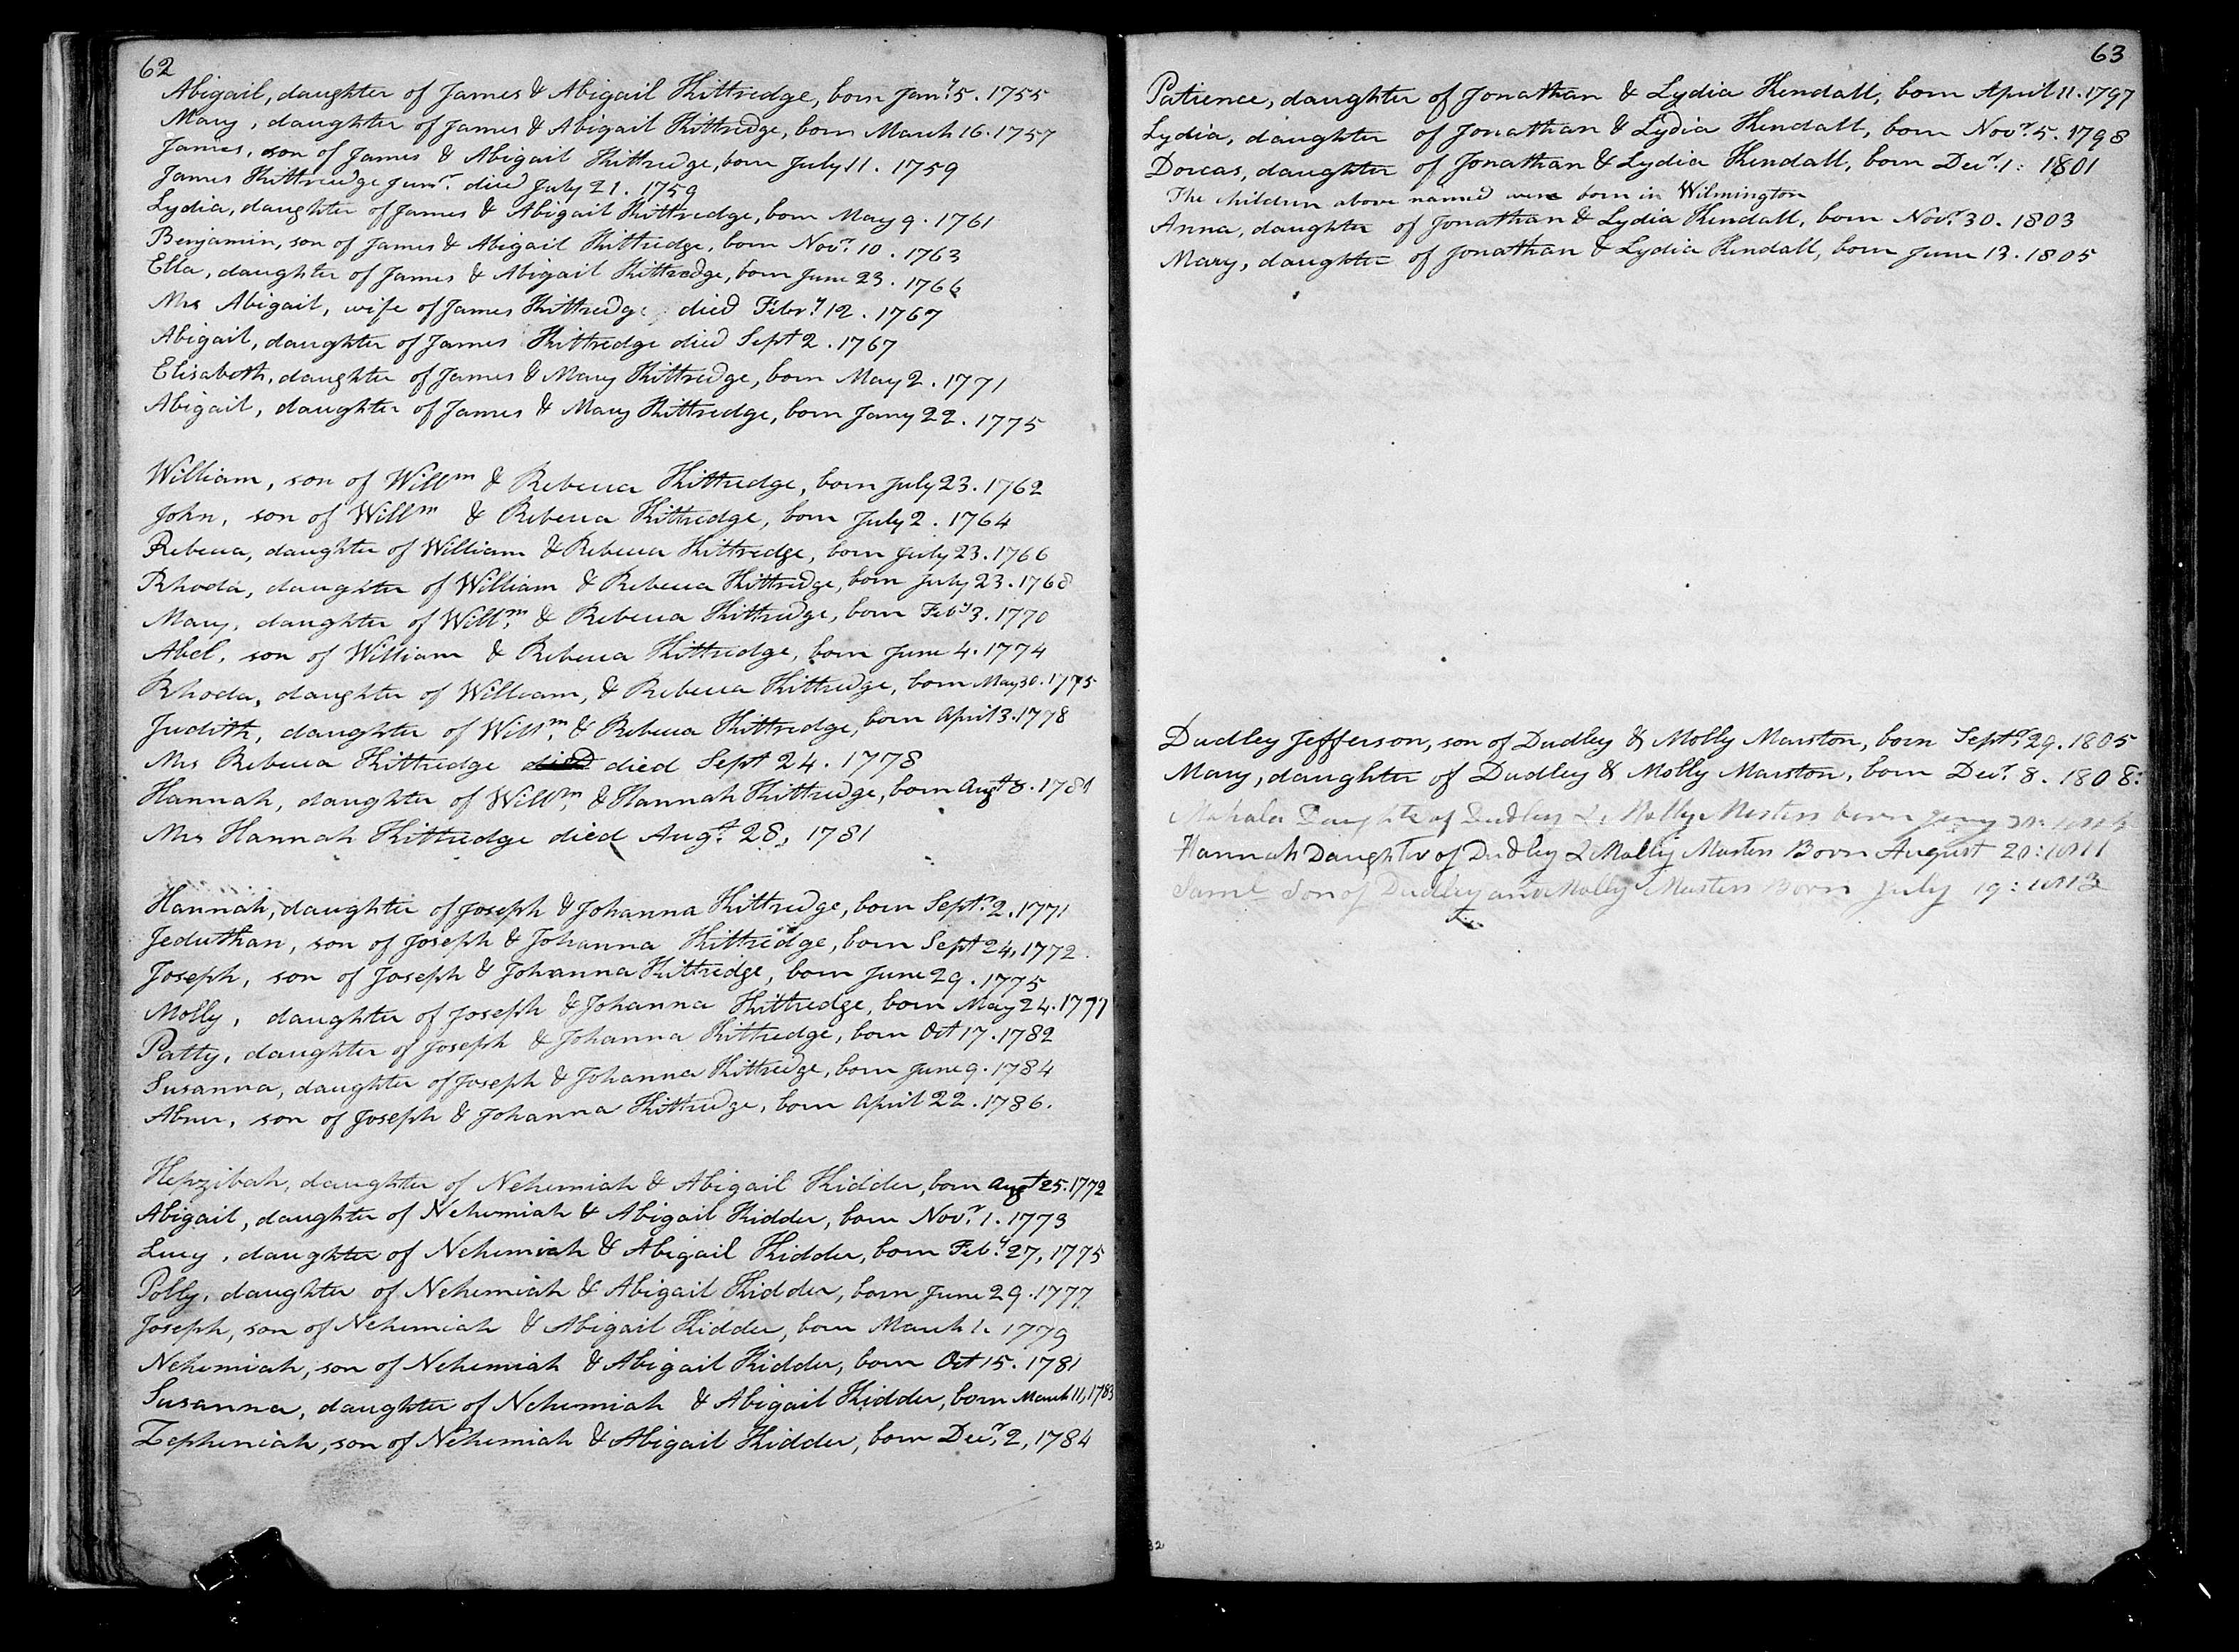 62
Abigail, daughter of James & Abigail Kittredge, born Jany 5. 1755
Mary, daughter of James & Abigail Kittredge, born March 16. 1757
James, son of James & Abigail Kittredge, born July 11. 1759
James Kittredge Junr. died July 21. 1759
Lydia, daughter of James & Abigail Kittredge, born May 9. 1761
Benjamin, son of James & Abigail Kittredge, born Novr. 10. 1763
Ella, daughter of James & Abigail Kittredge, born June 23. 1766
Mrs Abigail, wife of James Kittredge died Febry 12. 1767
Abigail, daughter of James Kittredge died Sept 2. 1767
Elisabeth, daughter of James & Mary Kittredge, born May 2. 1771
Abigail, daughter of James & Mary Kittredge, born Jany 22. 1775
William, son of Willm & Rebecca Kittredge, born July 23. 1762
John, son of Willm & Rebecca Kittredge, born July 2. 1764
Rebecca, daughter of William & Rebecca Kittredge, born July 23. 1766
Rhoda, daughter of William & Rebecca Kittredge, born July 23. 1768
Mary, daughter of Willm. & Rebecca Kittredge, born Feby 3. 1770
Abel, son of William & Rebecca Kittredge, born June 4. 1774
Rhoda, daughter of William, & Rebecca Kittredge, born May 30. 1775
Judith, daughter of Willm. & Rebecca Kittredge, born April 3. 1778
Mrs Rebecca Kittredge died died Sept 24. 1778
Hannah, daughter of Willm. & Hannah Kittredge, born Augt 8. 1781
Mrs Hannah Kittredge died Augt. 28, 1781
Hannah, daughter of Joseph & Johanna Kittredge, born Septr. 2. 1771
Jeduthan, son of Joseph & Johanna Kittredge, born Sept 24, 1772
Joseph, son of Joseph & Johanna Kittredge, born June 29. 1775
Molly, daughter of Joseph & Johanna Kittredge, born May 24. 1777
Patty, daughter of Joseph & Johanna Kittredge, born Oct 17. 1782
Susanna, daughter of Joseph & Johanna Kittredge, born June 9. 1784
Abner, son of Joseph & Johanna Kittredge, born April 22. 1786.
Hepzibah, daughter of Nehemiah & Abigail Kidder, born Augt 25. 1772
Abigail, daughter of Nehemiah & Abigail Kidder, born Novr. 1. 1773
Lucy, daughter of Nehemiah & Abigail Kidder, born Feby. 27, 1775
Polly, daughter of Nehemiah & Abigail Kidder, born June 29. 1777
Joseph, son of Nehemiah & Abigail Kidder, born March 1. 1779
Nehemiah, son of Nehemiah & Abigail Kidder, born Oct 15. 1781
Susanna, daughter of Nehemiah & Abigail Kidder, born March 11, 1783
Zepheniah, son of Nehemiah & Abigail Kidder, born Decr. 2, 1784
63
Patience, daughter of Jonathan & Lydia Kendall, born April 11. 1797
Lydia, daughter of Jonathan & Lydia Kendall, born Novr. 5. 1798
Dorcas, daughter of Jonathan & Lydia Kendall, born Decr. 1: 1801
The children above named were born in Wilmington
Anna, daughter of Jonathan & Lydia Kendall, born Novr. 30. 1803
Mary, daughter of Jonathan & Lydia Kendall, born June 13. 1805
Dudley Jefferson, son of Dudley & Molly Marston, born Septr. 29. 1805
Mary, daughter of Dudley & Molly Marston, born Decr. 8. 1808:
Mahala Daughte of Dudley & Molly born Jany
Hannah Daughter of Dudley & Molly Masten Born August 20: 1811
Saml Son of Dudley and Molly Masten Born July 19: 1813
32